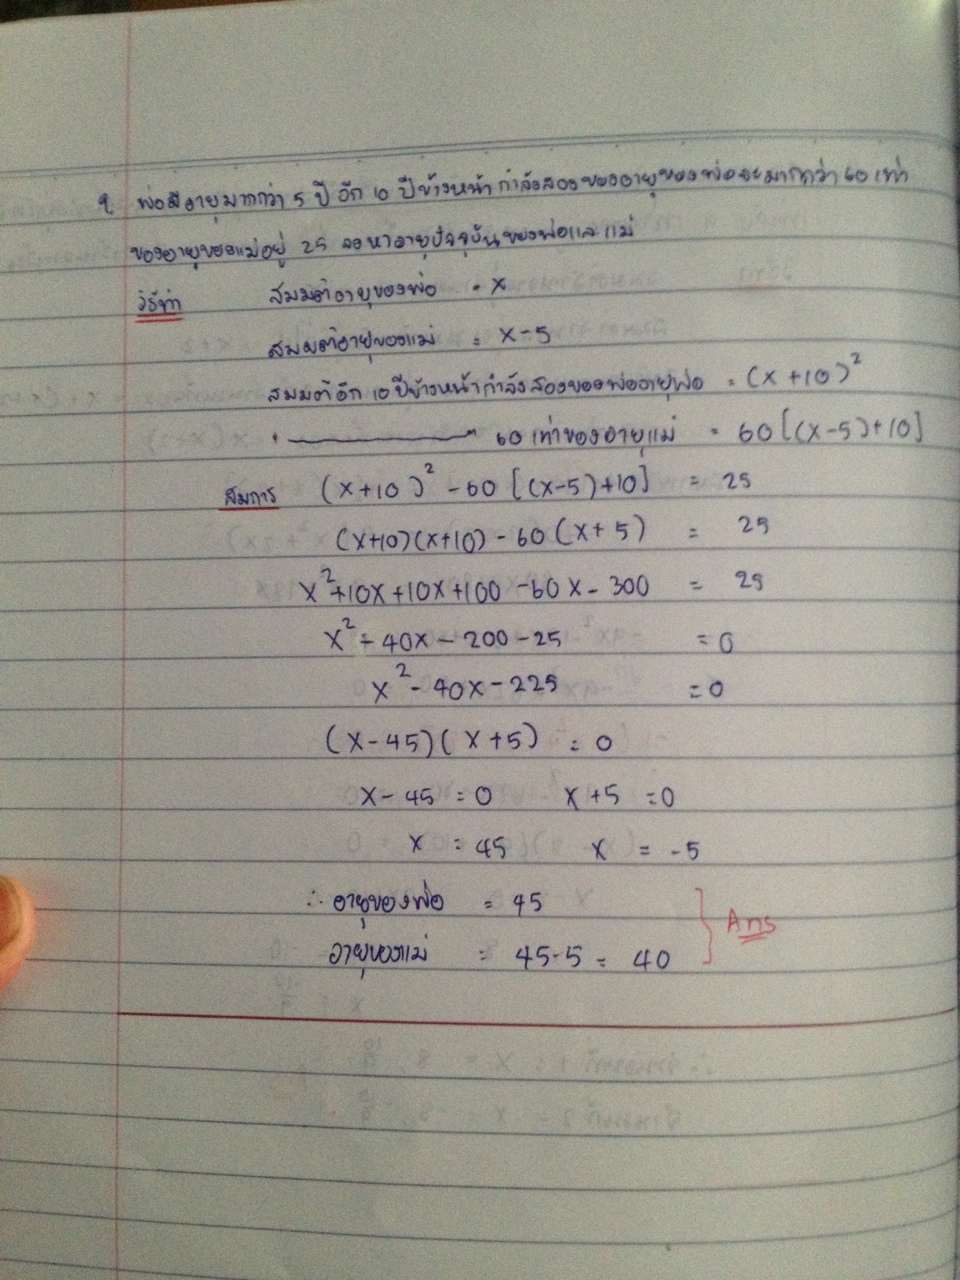 9. พ่อมีอายุมากกว่า 5 ปี อีก 10 ปีข้างหน้า กำลังสองของอายุของพ่อจะมากกว่า 60 เท่า
ของอายุของแม่อยู่ 25 จงหาอายุปัจจุบันของพ่อและแม่
วิธีทำ สมมติอายุของพ่อ = x
สมมติอายุของแม่ = x-5
สมมติอีก 10 ปีข้างหน้ากำลังสองของพ่ออายุพ่อ = (x+10)²
60 เท่าของอายุแม่ = 60[(x-5)+10]
สมการ (x+10)² - 60 [(x-5)+10] = 25
(x+10)(x+10) - 60 (x+5) = 25
x²+10x+10x+100 -60x - 300 = 25
x² - 40x - 200 - 25 = 0
x² - 40x - 225 = 0
(x-45)(x+5) = 0
x - 45 = 0 x + 5 = 0
x = 45 x = -5
∴ อายุของพ่อ = 45
อายุของแม่ = 45-5 = 40 Ans